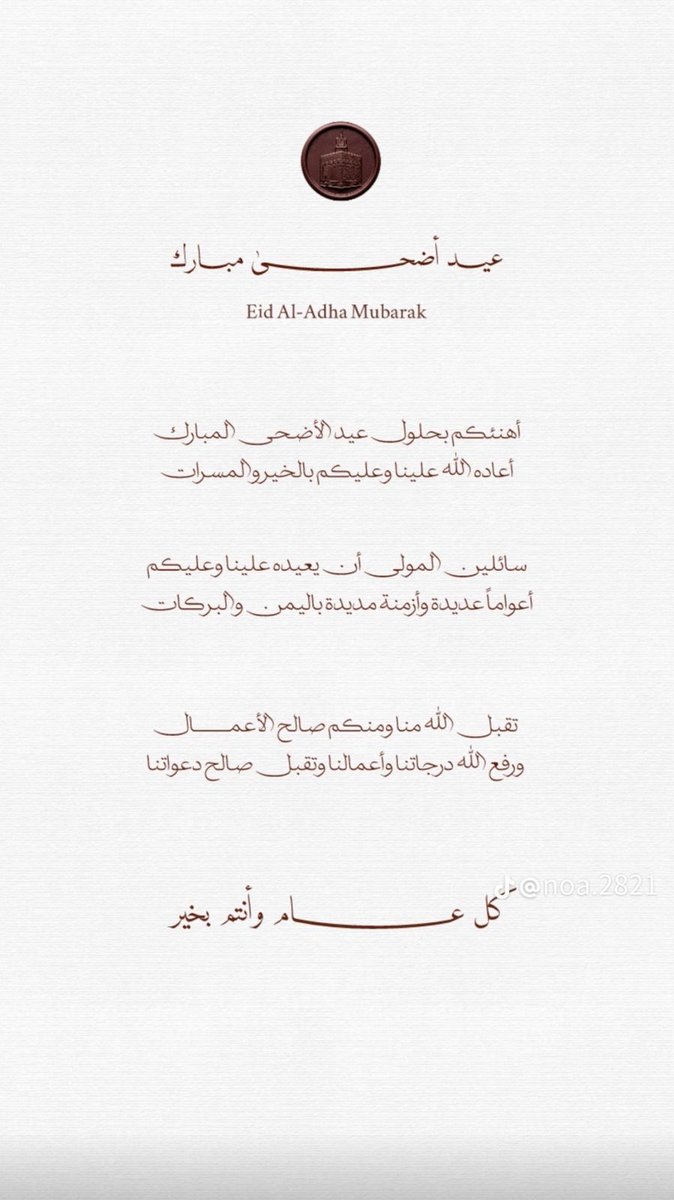 عيد أضحى مبارك
Eid Al-Adha Mubarak
أهنئكم بحلول عيد الأضحى المبارك
أعاده الله علينا وعليكم بالخير والمسرات
سائلين المولى أن يعيده علينا وعليكم
أعواماً عديدة وأزمنة مديدة باليمن والبركات
تقبل الله منا ومنكم صالح الأعمال
ورفع الله درجاتنا وأعمالنا وتقبل صالح دعواتنا
@noa.2821
كل عام وأنتم بخير